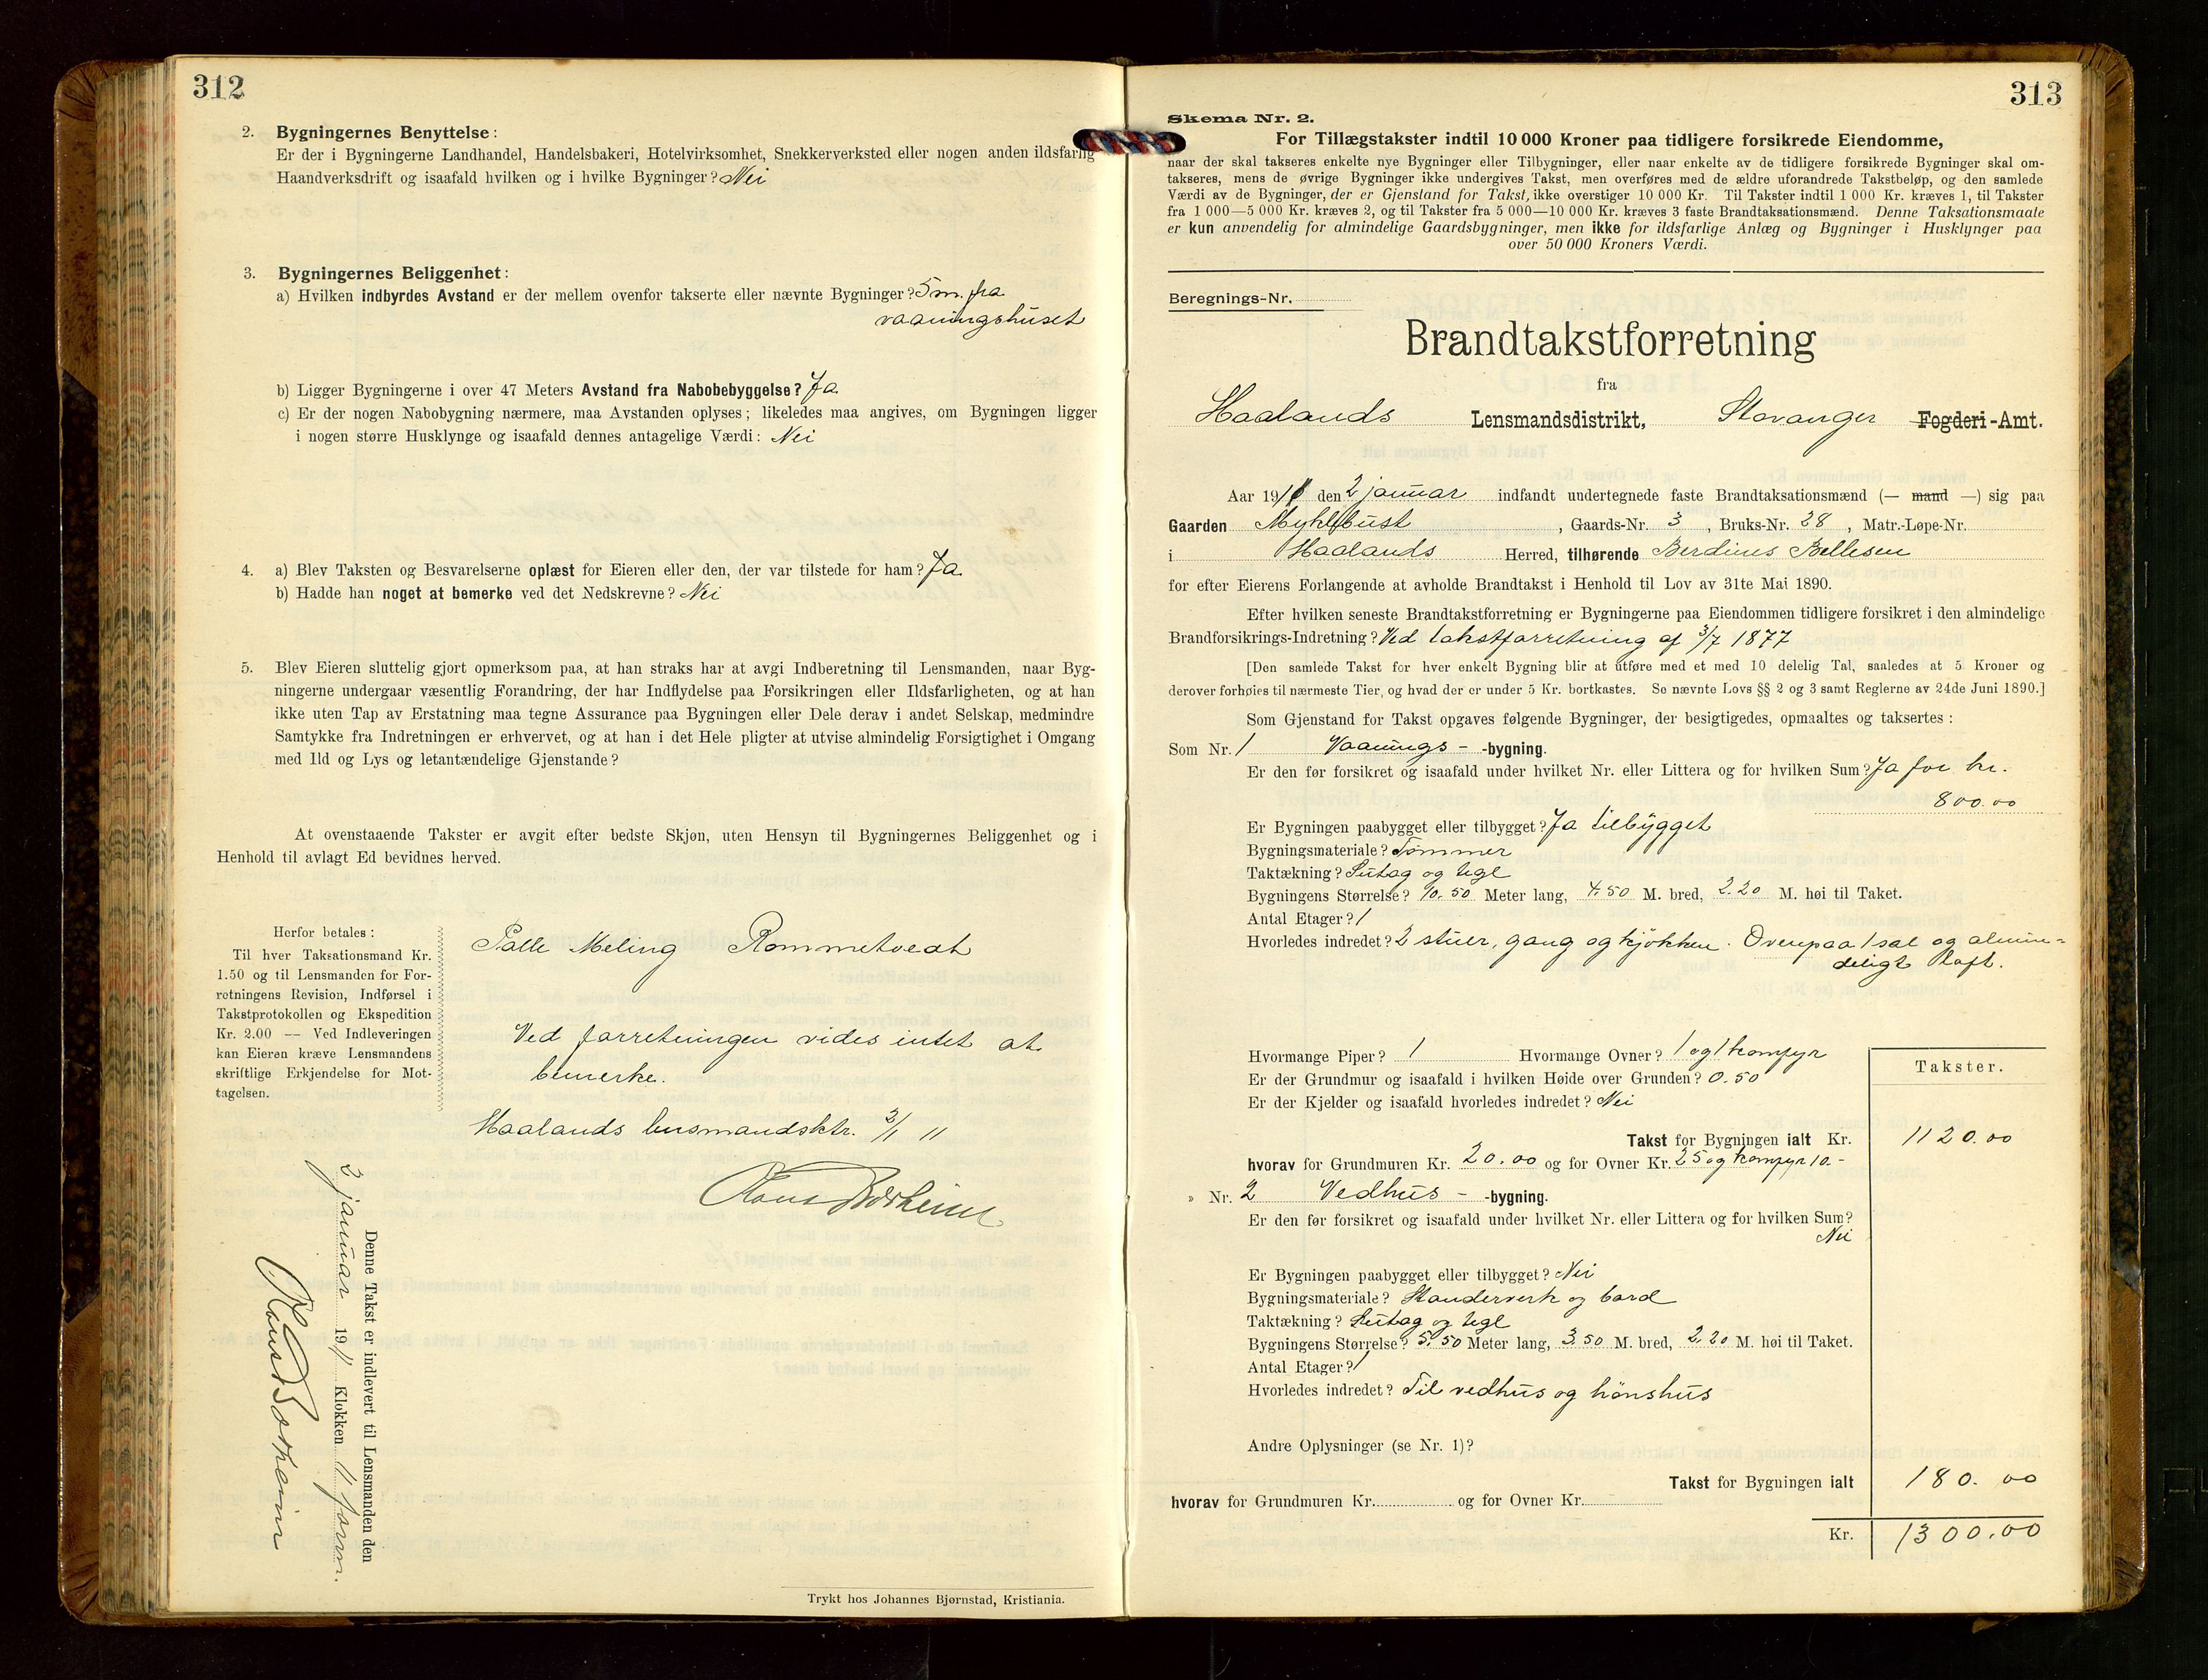 312
2. Bygningernes Benyttelse:
Er der i Bygningerne Landhandel, Handelsbakeri, Hotelvirksomhet, Snekkerverksted eller nogen anden ildsfarlig
Haandverksdrift og isaafald hvilken og i hvilke Bygninger? Nei
3. Bygningernes Beliggenhet:
a) Hvilken indbyrdes Avstand er der mellem ovenfor takserte eller nævnte Bygninger? 5 m. fra
vaaningshuset
b) Ligger Bygningerne i over 47 Meters Avstand fra Nabobebyggelse? Ja
c) Er der nogen Nabobygning nærmere, maa Avstanden oplyses; likeledes maa angives, om Bygningen ligger
i nogen større Husklynge og isaafald dennes antagelige Værdi: Nei
4. a) Blev Taksten og Besvarelserne oplæst for Eieren eller den, der var tilstede for ham? Ja
b) Hadde han noget at bemerke ved det Nedskrevne? Nei
5. Blev Eieren sluttelig gjort opmerksom paa, at han straks har at avgi Indberetning til Lensmanden, naar Byg-
ningerne undergaar væsentlig Forandring, der har Indflydelse paa Forsikringen eller Ildsfarligheten, og at han
ikke uten Tap av Erstatning maa tegne Assurance paa Bygningen eller Dele derav i andet Selskap, medmindre
Samtykke fra Indretningen er erhvervet, og at han i det Hele pligter at utvise almindelig Forsigtighet i Omgang
med Ild og Lys og letantændelige Gjenstande?
At ovenstaaende Takster er avgit efter bedste Skjøn, uten Hensyn til Bygningernes Beliggenhet og i
Henhold til avlagt Ed bevidnes herved.
Herfor betales:
Til hver Taksationsmand Kr.
1.50 og til Lensmanden for For-
retningens Revision, Indførsel i
Takstprotokollen og Ekspedition
Kr. 2.00 — Ved Indleveringen
kan Eieren kræve Lensmandens
skriftlige Erkjendelse for Mot-
tagelsen.
Palle Meling Rommetvedt
Ved forretningen vides intet at
bemerke.
Haalands lensmandsktr. 3/1 11
Denne Takst er indlevert til Lensmanden den
3 januar 1911 Klokken 11 form.
Trykt hos Johannes Bjørnstad, Kristiania.
313
Skema Nr. 2.
For Tillægstakster indtil 10 000 Kroner paa tidligere forsikrede Eiendomme,
naar der skal takseres enkelte nye Bygninger eller Tilbygninger, eller naar enkelte av de tidligere forsikrede Bygninger skal om-
takseres, mens de øvrige Bygninger ikke undergives Takst, men overføres med de ældre uforandrede Takstbeløp, og den samlede
Værdi av de Bygninger, der er Gjenstand for Takst, ikke overstiger 10 000 Kr. Til Takster indtil 1 000 Kr. kræves 1, til Takster
fra 1 000—5 000 Kr. kræves 2, og til Takster fra 5 000—10 000 Kr. kræves 3 faste Brandtaksationsmænd. Denne Taksationsmaate
er kun anvendelig for almindelige Gaardsbygninger, men ikke for ildsfarlige Anlæg og Bygninger i Husklynger paa
over 50 000 Kroners Værdi.
Beregnings-Nr.
Brandtakstforretning
fra
Haalands Lensmandsdistrikt, Stavanger Fogderi-Amt.
Aar 1911 den 2 januar indfandt undertegnede faste Brandtaksationsmænd (— mand —) sig paa
Gaarden Myklebust, Gaards-Nr. 3, Bruks-Nr. 28, Matr.-Løpe-Nr.
i Haalands Herred, tilhørende Berdines Bellesen
for efter Eierens Forlangende at avholde Brandtakst i Henhold til Lov av 31te Mai 1890.
Efter hvilken seneste Brandtakstforretning er Bygningerne paa Eiendommen tidligere forsikret i den almindelige
Brandforsikrings-Indretning? Ved takstforretning af 3/7 1877
[Den samlede Takst for hver enkelt Bygning blir at utføre med et med 10 delelig Tal, saaledes at 5 Kroner og
derover forhøies til nærmeste Tier, og hvad der er under 5 Kr. bortkastes. Se nævnte Lovs §§ 2 og 3 samt Reglerne av 24de Juni 1890.]
Som Gjenstand for Takst opgaves følgende Bygninger, der besigtigedes, opmaaltes og taksertes:
Som Nr. 1 Vaanings - -bygning.
Er den før forsikret og isaafald under hvilket Nr. eller Littera og for hvilken Sum? Ja for kr.
800.00
Er Bygningen paabygget eller tilbygget? Ja tilbygget
Bygningsmateriale? Tømmer
Taktækning? Sutag og tegl
Bygningens Størrelse? 10.50 Meter lang, 4.50 M. bred, 2.20 M. høi til Taket.
Antal Etager? 1
Hvorledes indredet? 2 stuer, gang og kjøkken. Ovenpaa 1 sal og almin-
deligt loft.
Hvormange Piper? 1 Hvormange Ovner? 1 og 1 komfyr
Er der Grundmur og isaafald i hvilken Høide over Grunden? 0.50
Er der Kjelder og isaafald hvorledes indredet? Nei
Takster.
Takst for Bygningen ialt Kr. 1120.00
hvorav for Grundmuren Kr. 20.00 og for Ovner Kr. 25 og komfyr 10.-
» Nr. 2 Vedhus - -bygning.
Er den før forsikret og isaafald under hvilket Nr. eller Littera og for hvilken Sum?
Nei
Er Bygningen paabygget eller tilbygget? Nei
Bygningsmateriale? Standerverk og bord
Taktækning? Sutag og tegl
Bygningens Størrelse? 5.50 Meter lang, 3.50 M. bred, 2.20 M. høi til Taket.
Antal Etager? 1
Hvorledes indredet? Til vedhus og hønshus
Andre Oplysninger (se Nr. 1)?
Takst for Bygningen ialt 180.00
hvorav for Grundmuren Kr. og for Ovner Kr.
Kr. 1300.00